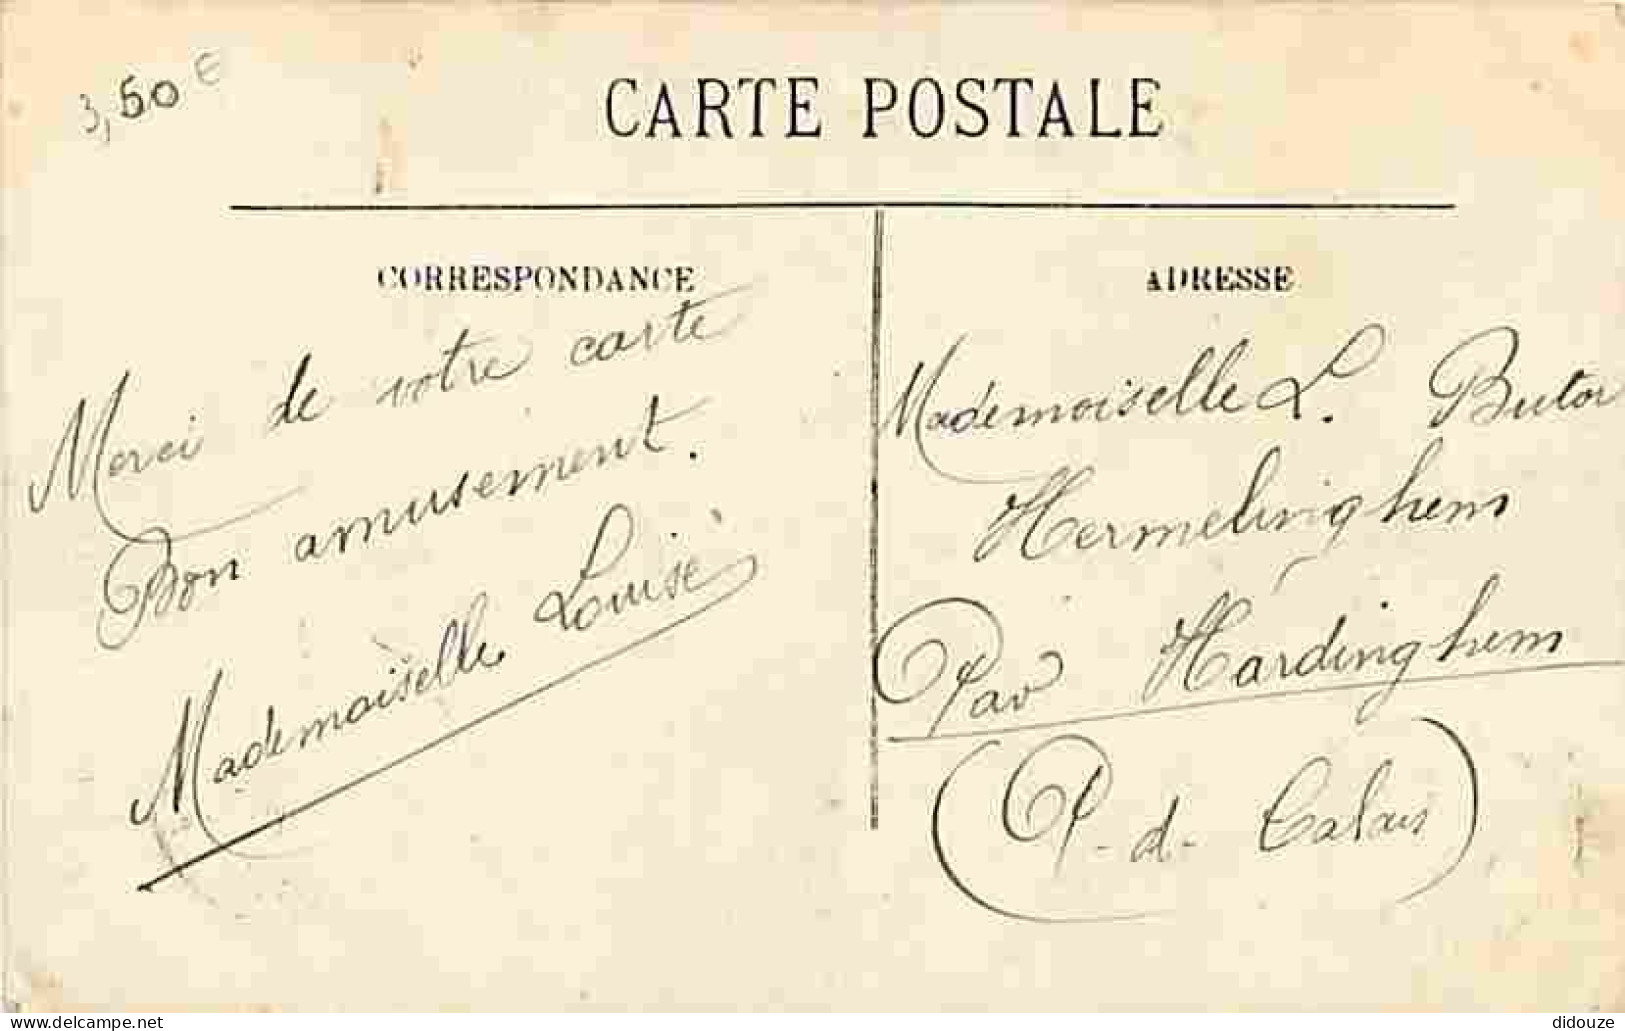 3,50 €
CARTE POSTALE
CORRESPONDANCE
Merci de votre carte
Bon amusement.
Mademoiselle Louise
ADRESSE
Mademoiselle L. Butor
Hermelinghem
Par Hardinghem
(P. d. Calais)
delcampe.net
didouze